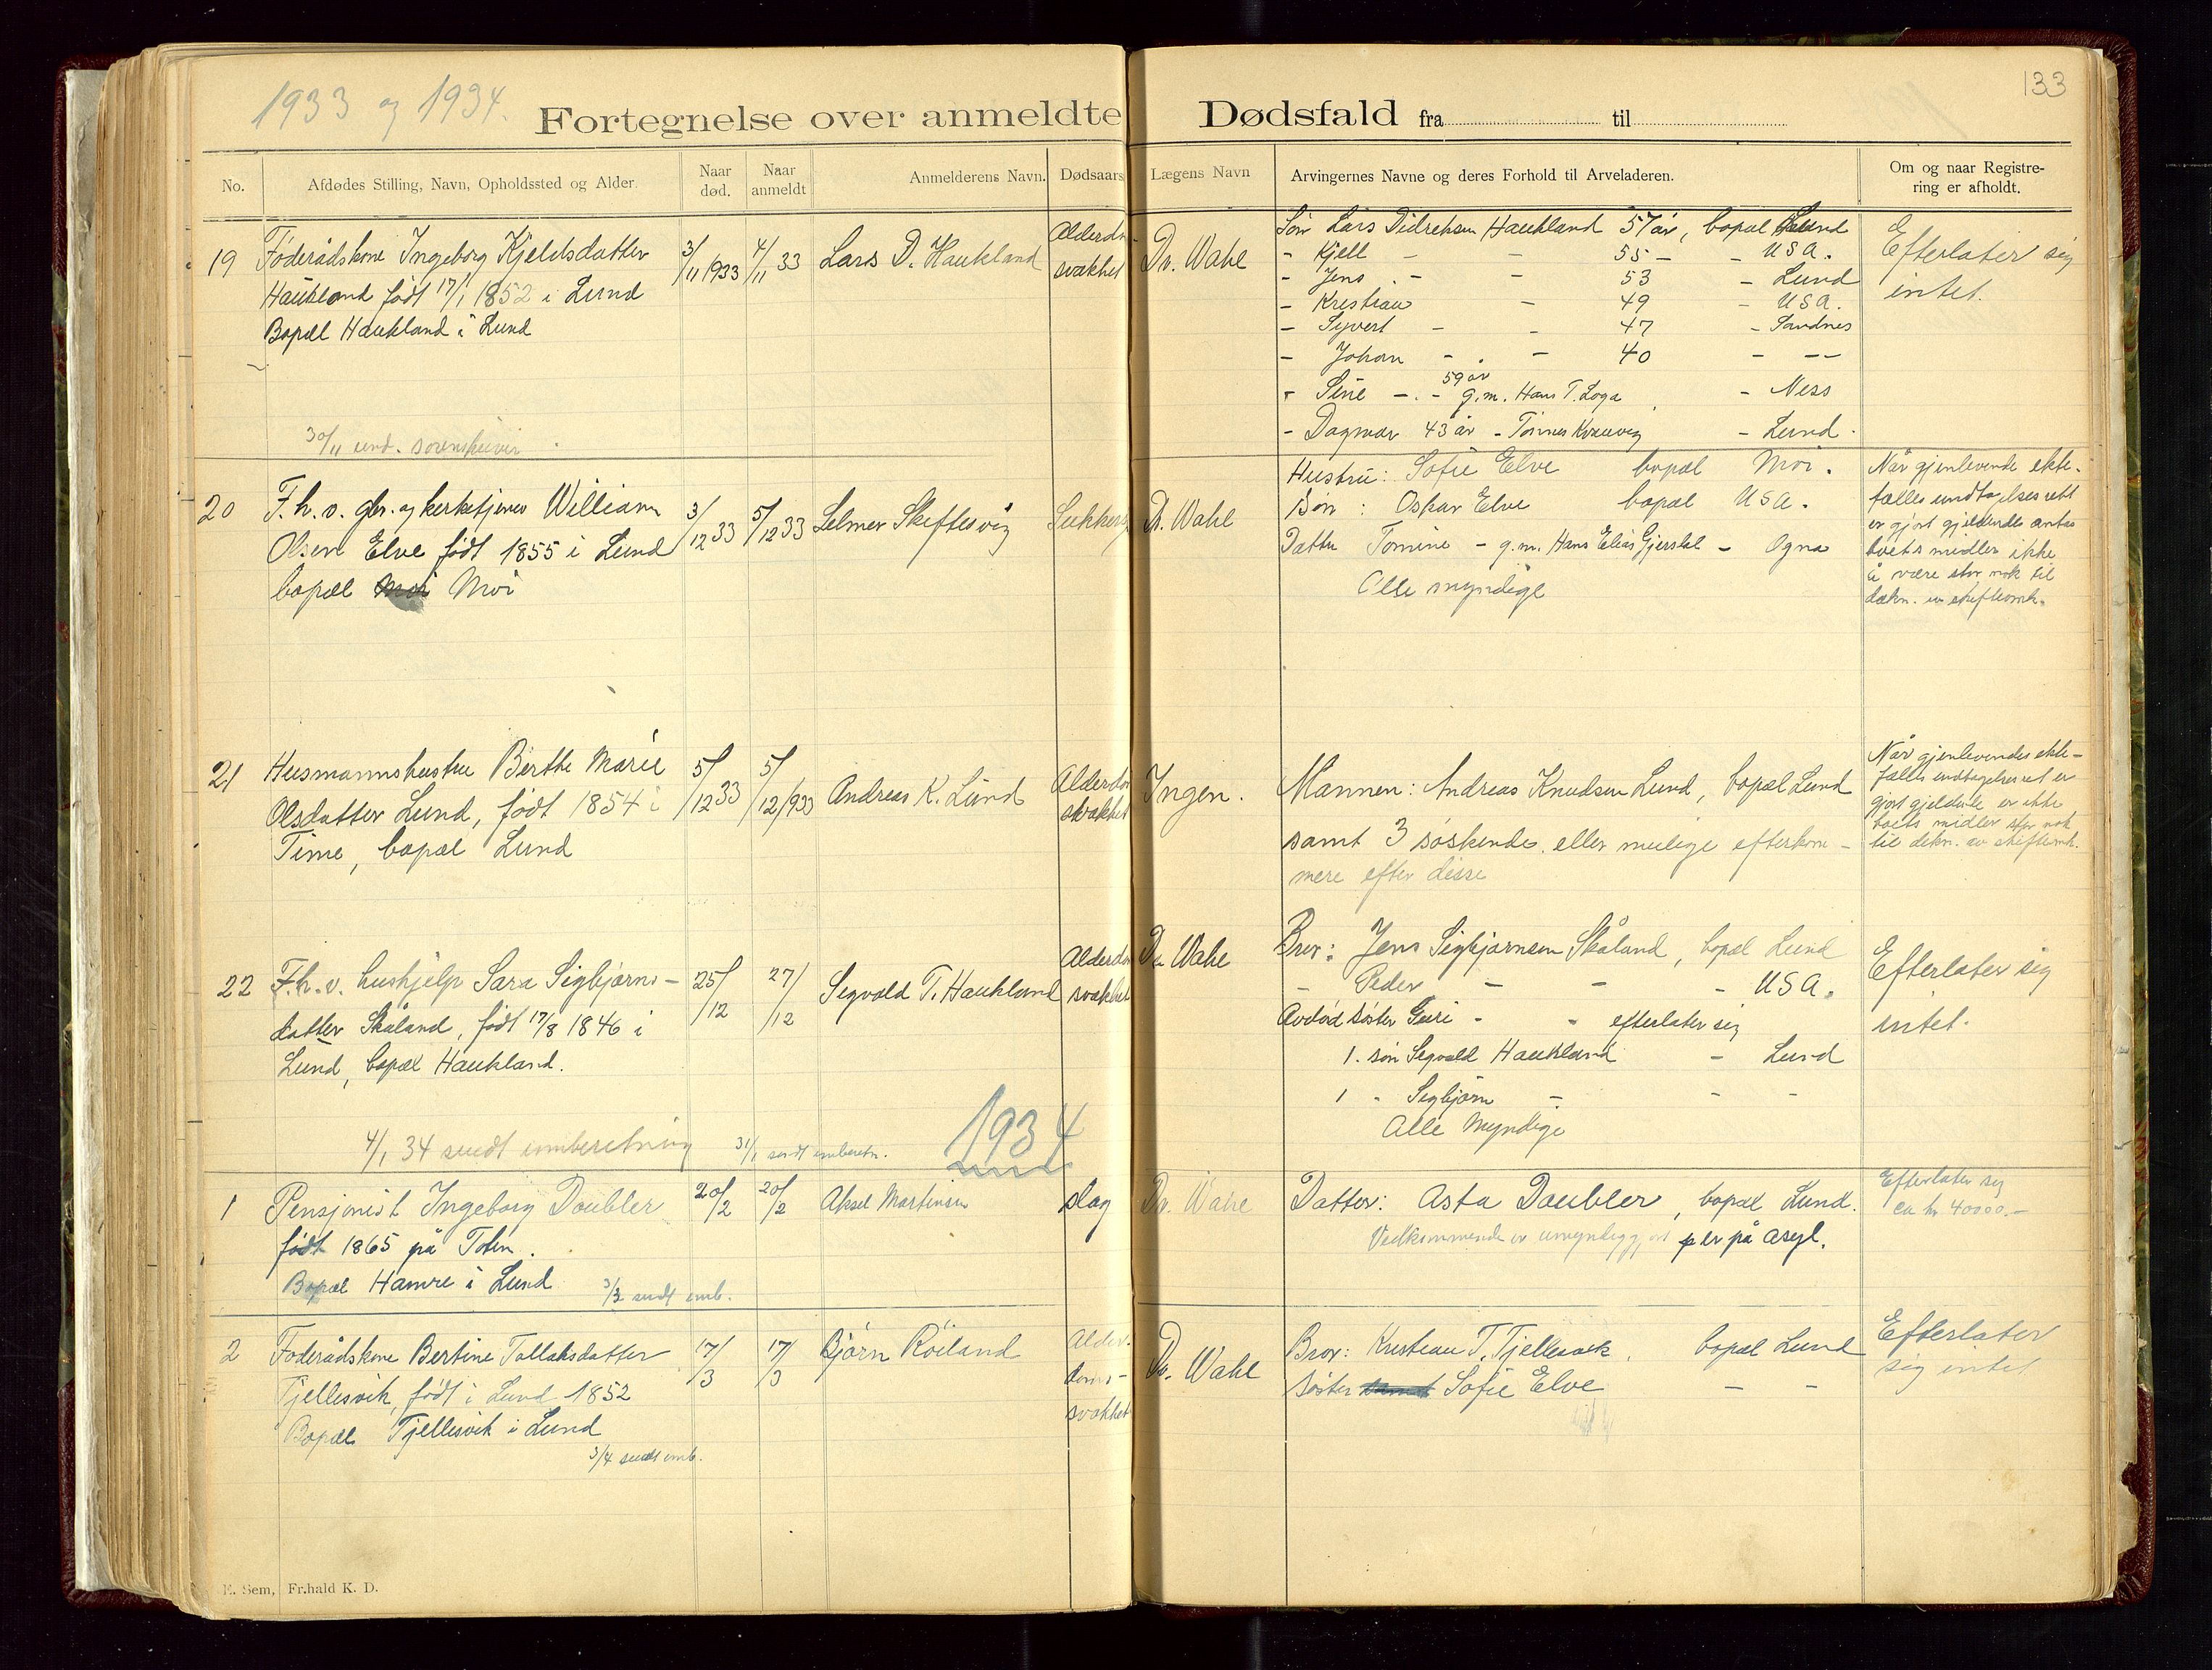 133
1933 og 1934.
Fortegnelse over anmeldte Dødsfald fra til
No.
Afdødes Stilling, Navn, Opholdssted og Alder.
Naar død.
Naar anmeldt
Anmelderens Navn.
Dødsaars
Lægens Navn
Arvingernes Navne og deres Forhold til Arveladeren.
Om og naar Registrering er afholdt.
19
Føderådskone Ingeborg Kjeldsdatter
Haukland født 17/1 1852 i Lund
Bopæl Haukland i Lund
3/11 1933
4/11 33
Lars D. Haukland
Alderdo
svakhet
Dr. Wahl
Søn Lars Didreksen Haukland 57 år, bopæl Lund
- Kjell - - 55 - - USA.
- Jens - - 53 - Lund
- Kristian - 49 - USA.
- Syvert - - 47 - Sandnes
- Johan - - 40 - --
- Sine - - 59 år g.m. Hans T. Loga - Ness
- Dagmar 43 år - Tønnes Kvanvig - Lund.
Efterlater sig
intet.
30/11 und. sorenskriver
20
F.h.v. gbr. og kirketjener William
Olsen Elve født 1855 i Lund
bopæl Moi Moi
3/12 33
5/12 33
Selmer Skiftesvig
Sukkers
Dr. Wahl
Hustru: Sofie Elve bopæl Moi.
Søn: Oskar Elve bopæl USA.
Datter Tomine - g.m. Hans Elias Gjerstal - Ogna
Alle myndige
Når gjenlevende ekte-
fælles undtagelsesrett
er gjort gjeldende antas
boets midler ikke
å være stor nok til
dækn. av skifteomk.
21
Husmannshustru Berthe Marie
Olsdatter Lund, født 1854 i
Time, bopæl Lund
5/12 33
5/12 1933
Andreas K. Lund
Alderdom
svakhet
Ingen.
Mannen: Andreas Knudsen Lund, bopæl Lund
samt 3 søskende, eller mulige efterkom-
mere efter disse
Når gjenlevendes ekte-
fælles undtagelsesret er
gjort gjeldende er ikke
boets midler stor nok
til dekn. av skifteomk.
22
F.h.v. hushjelp Sara Sigbjørns-
datter Skåland, født 17/8 1846 i
Lund, bopæl Haukland.
25/12
27/12
Segvald T. Haukland
Alderdo
svakhet
Dr. Wahl
Bror: Jens Sigbjørnsen Skåland, bopæl Lund
- Peder - - - USA.
Avdød søster Guri - - efterlater sig
1. søn Segvald Haukland - Lund
1 - Sigbjørn - - -
Alle Myndige
Efterlater sig
intet.
4/1 34 sendt innberetning
31/1 sendt innberetn.
1934
1
Pensjonist Ingeborg Doubler
født 1865 på Toten.
Bopæl Hamre i Lund
20/2
20/2
Aksel Martinsen
slag
Dr. Wahl
Datter: Asta Doubler, bopæl Lund.
Vedkommende er umyndiggjort er på asyl.
Efterlater sig
ca kr 40000.-
3/3 sendt innb.
2
Føderådskone Bertine Tollaksdatter
Tjellesvik, født i Lund 1852
Bopæl Tjellesvik i Lund
17/3
17/3
Bjørn Röiland
Alder-
doms-
svakhet
Dr. Wahl
Bror: Kristian T. Tjellesvik. bopæl Lund
Søster Sofie Elve - -
Efterlater
sig intet
3/4 sendt innb.
E. Sem, Fr.hald K. D.